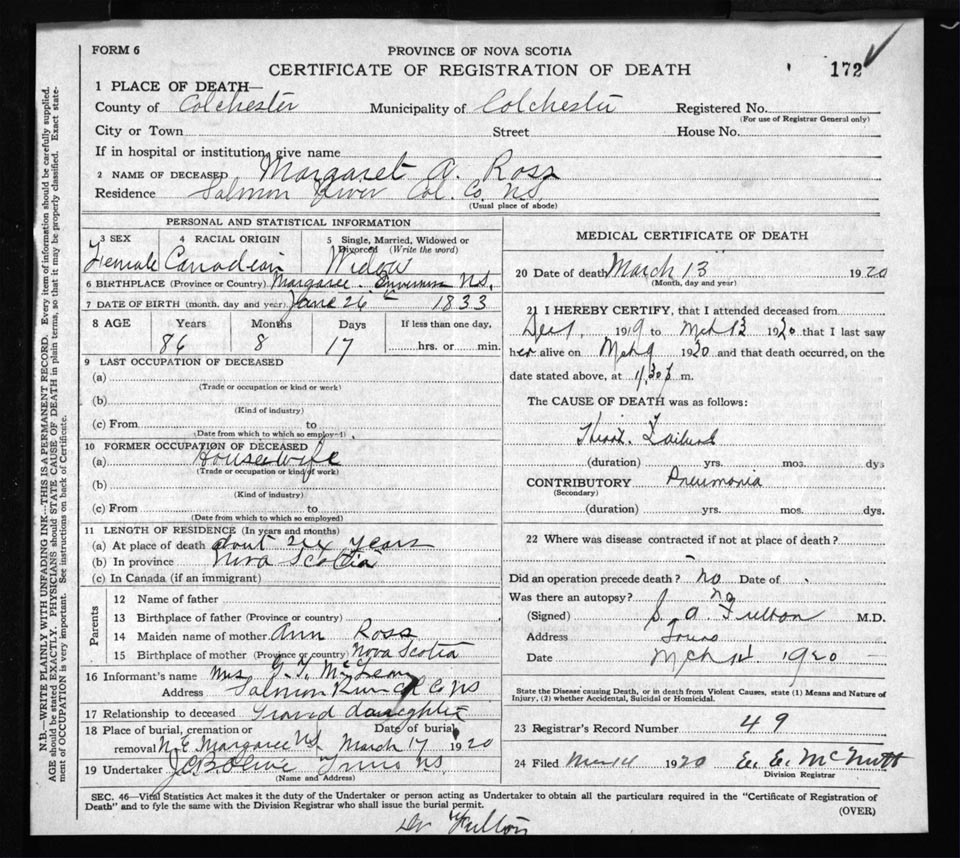 FORM 6
PROVINCE OF NOVA SCOTIA
CERTIFICATE OF REGISTRATION OF DEATH 172
1 PLACE OF DEATH—
County of Colchester Municipality of Colchester Registered No.
(For use of Registrar General only)
City or Town Street House No.
If in hospital or institution, give name
2 NAME OF DECEASED Margaret A. Ross
Residence Salmon River Col. Co. N.S.
(Usual place of abode)
PERSONAL AND STATISTICAL INFORMATION
3 SEX 4 RACIAL ORIGIN 5 Single, Married, Widowed or Divorced (Write the word)
Female Canadian Widow
6 BIRTHPLACE (Province or Country) Margaree Inverness N.S.
7 DATE OF BIRTH (month, day and year) June 26th 1833
8 AGE Years Months Days If less than one day,
86 8 17 hrs. or min.
9 LAST OCCUPATION OF DECEASED
(a)
(Trade or occupation or kind or work)
(b)
(Kind of industry)
(c) From to
(Date from which to which so employed)
10 FORMER OCCUPATION OF DECEASED
(a) Housewife
(Trade or occupation or kind of work)
(b)
(Kind of industry)
(c) From to
(Date from which to which so employed)
11 LENGTH OF RESIDENCE (In years and months)
(a) At place of death about six years
(b) In province Nova Scotia
(c) In Canada (if an immigrant)
Parents
12 Name of father
13 Birthplace of father (Province or country)
14 Maiden name of mother Ann Ross
15 Birthplace of mother (Province or country) Nova Scotia
16 Informant's name Mrs G. McLean
Address Salmon River Col Co NS
17 Relationship to deceased Grand daughter
18 Place of burial, cremation or Date of burial
removal N.E. Margaree N.S. March 17 1920
19 Undertaker J.C.B. Olive Truro N.S.
(Name and Address)
MEDICAL CERTIFICATE OF DEATH
20 Date of death March 13 1920
(Month, day and year)
21 I HEREBY CERTIFY, that I attended deceased from
Dec 1, 1919 to Mch 12 1920 that I last saw
her alive on Mch 9 1920 and that death occurred, on the
date stated above, at m.
The CAUSE OF DEATH was as follows:
Heart Failure
(duration) yrs. mos. dys
CONTRIBUTORY Pneumonia
(Secondary)
(duration) yrs. mos. dys.
22 Where was disease contracted if not at place of death?
Did an operation precede death? no Date of
Was there an autopsy? no
(Signed) S. A. Fulton M.D.
Address Truro
Date Mch 1920
State the Disease causing Death, or in death from Violent Causes, state (1) Means and Nature of
Injury, (2) whether Accidental, Suicidal or Homicidal.
23 Registrar's Record Number 49
24 Filed Mar 14 1920 E. E. McNutt
Division Registrar
SEC. 46—Vital Statistics Act makes it the duty of the Undertaker or person acting as Undertaker to obtain all the particulars required in the "Certificate of Registration of
Death" and to fyle the same with the Division Registrar who shall issue the burial permit.
(OVER)
Dr Fulton
N.B.—WRITE PLAINLY WITH UNFADING INK—THIS IS A PERMANENT RECORD. Every item of information should be carefully supplied.
AGE should be stated EXACTLY. PHYSICIANS should STATE CAUSE OF DEATH in plain terms, so that it may be properly classified. Exact state-
ment of OCCUPATION is very important. See instructions on back of Certificate.